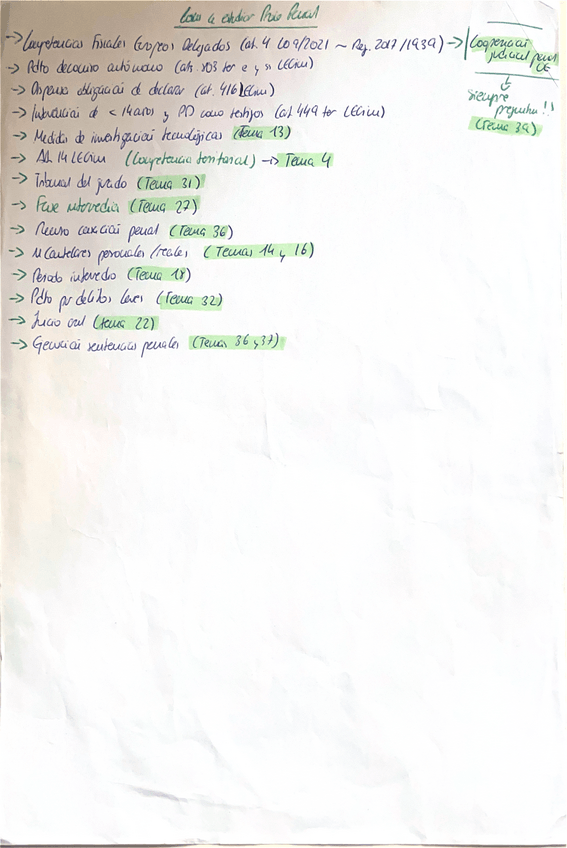 Cosas a estudiar Proc Penal
-> Competencias Fiscales Europeos Delegados (art. 4 LO 9/2021 ~ Reg. 2017/1939) -> Cooperación judicial penal UE
↓
siempre preguntan!!
(Tema 39)
-> Pdto decomiso autónomo (arts. 803 ter e y ss LECrim)
-> Dispensa obligación de declarar (art. 416 LECrim)
-> Intervención de < 14 años y PD como testigos (art 449 ter LECrim)
-> Medidas de investigación tecnológicas (Tema 13)
-> Art. 14 LECrim (Competencia territorial) -> Tema 4
-> Tribunal del jurado (Tema 31)
-> Fase intermedia (Tema 27)
-> Recurso casación penal (Tema 36)
-> M Cautelares personales/reales (Temas 14 y 16)
-> Periodo intermedio (Tema 18)
-> Pdto por delitos leves (Tema 32)
-> Juicio oral (tema 22)
-> Ejecución sentencias penales (Temas 36 y 37)